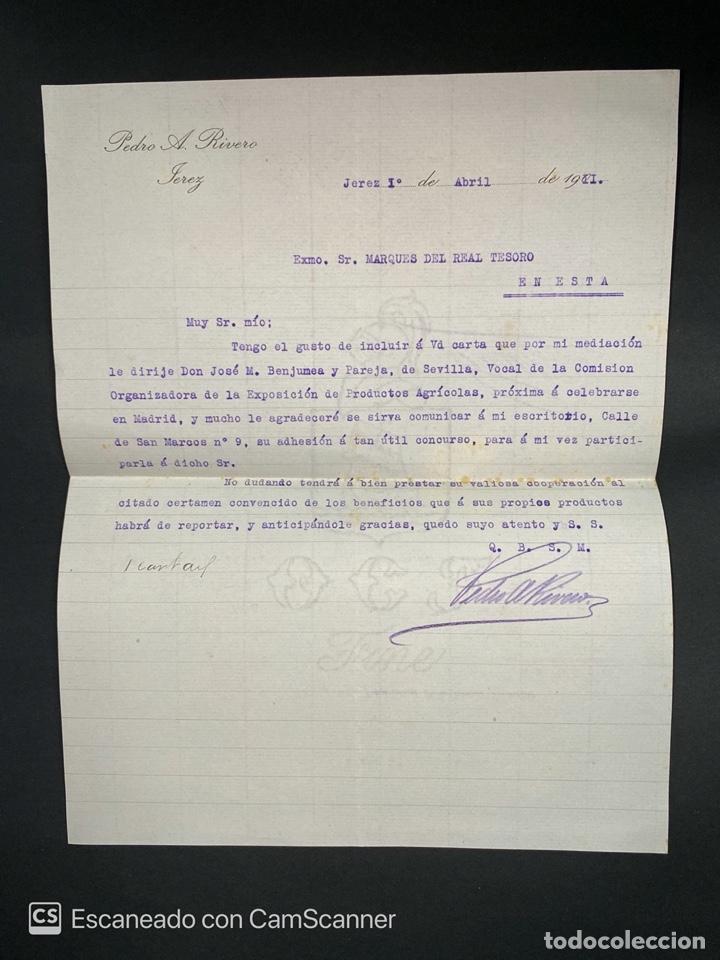 Pedro A. Rivero
Jerez
Jerez 1º de Abril de 1911.
Exmo. Sr. MARQUES DEL REAL TESORO
EN ESTA
Muy Sr. mío;
Tengo el gusto de incluir á Vd carta que por mi mediación
le dirije Don José M. Benjumea y Pareja, de Sevilla, Vocal de la Comision
Organizadora de la Exposición de Productos Agrícolas, próxima á celebrarse
en Madrid, y mucho le agradeceré se sirva comunicar á mi escritorio, Calle
de San Marcos nº 9, su adhesión á tan útil concurso, para á mi vez partici-
parla á dicho Sr.
No dudando tendrá á bien prestar su valiosa cooperación al
citado certamen convencido de los beneficios que á sus propios productos
habrá de reportar, y anticipándole gracias, quedo suyo atento y S. S.
Q. B. S. M.
Pedro A. Rivero
CS Escaneado con CamScanner
todocoleccion